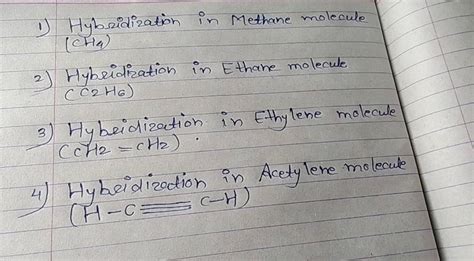 1) Hybridization in Methane molecule
(CH4)
2) Hybridization in Ethane molecule
(C2H6)
3) Hybridization in Ethylene molecule
(CH2=CH2).
4) Hybridization in Acetylene molecule
(H-C≡C-H)